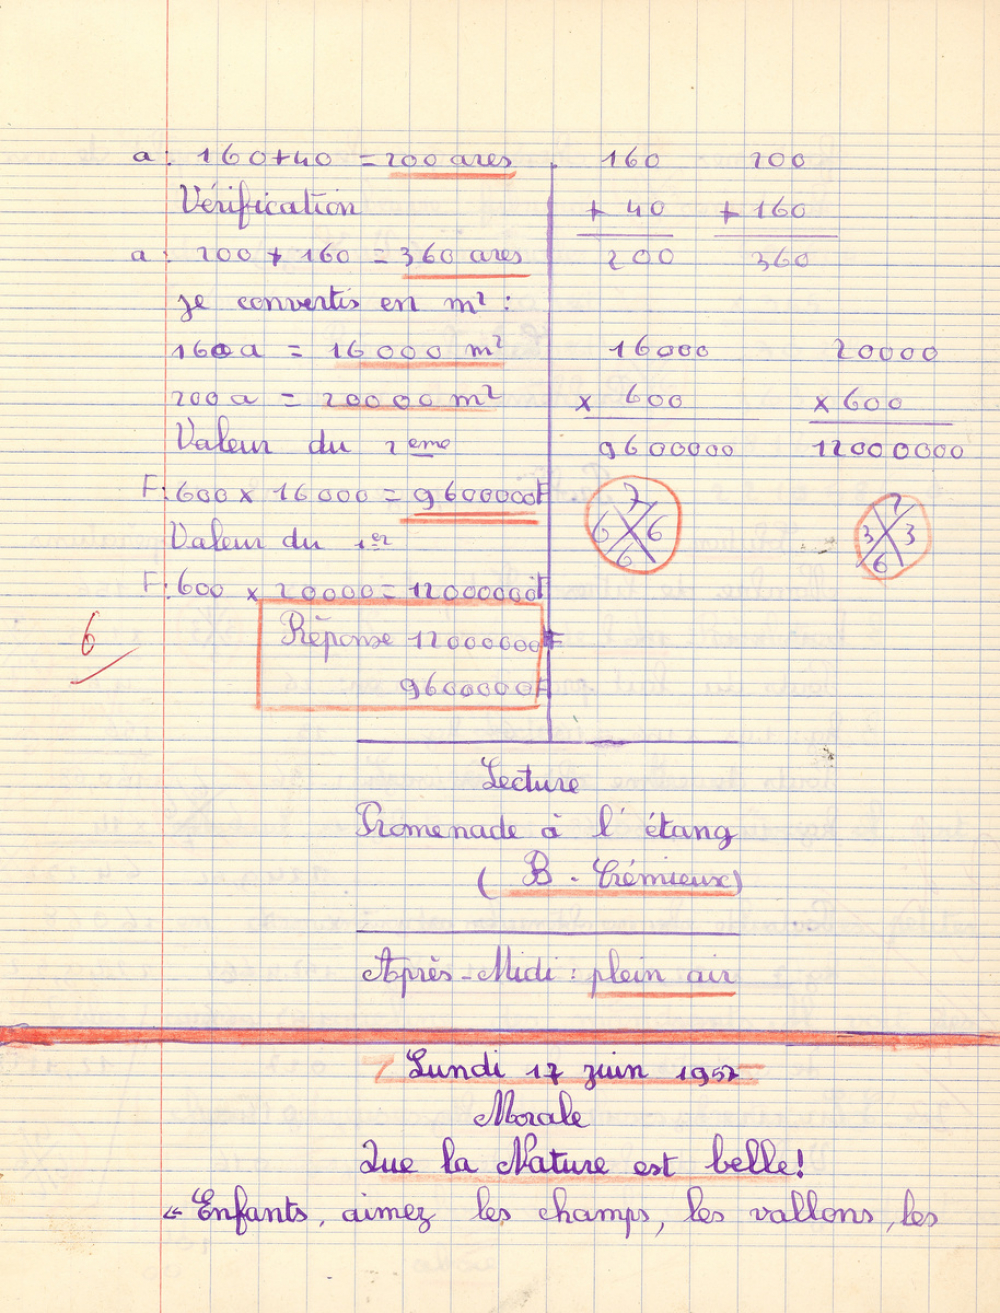 a : 160+40 = 200 ares 160 200
Vérification + 40 + 160
a : 200 + 160 = 360 ares 200 360
je convertis en m² :
160a = 16000 m² 16000 20000
200 a = 20000 m² x 600 x 600
Valeur du 2eme 9600000 12000000
F:600 x 16000 = 9600000F 7 7
6 6 3 3
Valeur du 1er 6 6
F:600 x 20000 = 12000000F
Réponse 12000000F
6
9600000F
Lecture
Promenade à l'étang
( B. Crémieux)
Après-Midi : plein air
Lundi 17 juin 1957
Morale
Que la Nature est belle!
" Enfants, aimez les champs, les vallons, les